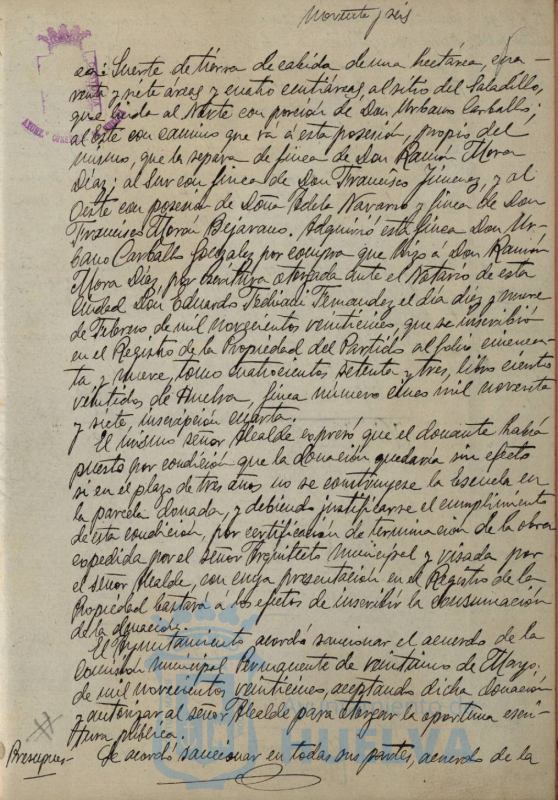 Noventa y seis
es: Suerte de tierra de cabida de una hectárea, cua-
renta y siete áreas y cuatro centiáreas al sitio del Saladillo,
que linda al Norte con porción de Don Urbano Carballo;
al Este con camino que va a esta posesión, propio del
mismo, que la separa de finca de Don Ramón Mora
Díaz; al Sur con finca de Don Francisco Jimenez, y al
Oeste con posesión de Doña Adela Navarro y finca de Don
Francisco Morón Bejarano. Adquirió esta finca Don Ur-
bano Carballo Gonzalez por compra que hizo á Don Ramón
Mora Díaz, por escritura otorgada ante el Notario de esta
Ciudad Don Eduardo Fernandez el día diez y nueve
de Febrero de mil novecientos veinticinco, que se inscribió
en el Registro de la Propiedad del Partido al folio cincuen-
ta y nueve, tomo cuatrocientos setenta y tres, libro ciento
veintidos de Huelva, finca número cinco mil noventa
y siete, inscripción cuarta.
El mismo señor Alcalde expresó que el donante había
puesto por condición que la donación quedaría sin efecto
si en el plazo de tres años no se construyese la Escuela en
la parcela donada, y debiendo justificarse el cumplimiento
de esta condición, por certificación de terminación de la obra
expedida por el señor Arquitecto Municipal y visada por
el señor Alcalde, con cuya presentación en el Registro de la
Propiedad bastará á los efectos de inscribir la consumación
de la donación.
El Ayuntamiento acordó sancionar el acuerdo de la
Comisión Municipal Permanente de veintiuno de Mayo,
de mil novecientos veinticinco, aceptando dicha donación
y autorizar al señor Alcalde para otorgar la oportuna escri-
tura pública.
Se acordó sancionar en todas sus partes, acuerdo de la
Ayuntamiento de
HUELVA